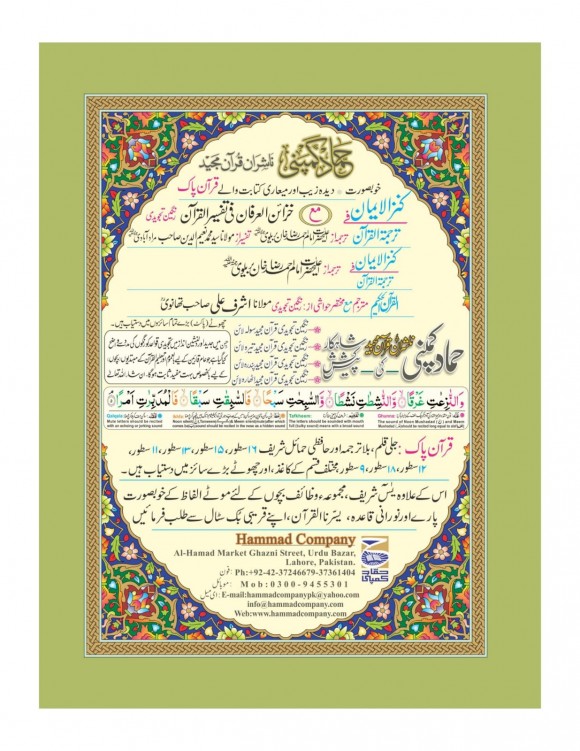 حماد کمپنی ناشران قرآن مجید
خوبصورت ٭ دیدہ زیب اور معیاری کتابت والے قرآن پاک
کنز الایمان فی مع خزائن العرفان فی تفسیر القرآن رنگین تجویدی
ترجمۃ القرآن ترجمہ از اعلیٰحضرت امام احمد رضا خان بریلوی تفسیر از مولانا سید محمد نعیم الدین صاحب مراد آبادی
کنز الایمان فی ترجمہ از اعلیٰحضرت امام احمد رضا خان بریلوی
ترجمۃ القرآن
القرآن الحکیم مترجم مع مختصر حواشی از: رنگین تجویدی مولانا اشرف علی صاحب تھانوی
چھوٹے (پاکٹ) بڑے تمام سائزوں میں دستیاب ہیں۔
حماد کمپنی کی شاہکار پیشکش
رنگین تجویدی قرآن مجید سولہ لائن
رنگین تجویدی قرآن مجید تیرہ لائن
رنگین تجویدی قرآن مجید پندرہ لائن
رنگین تجویدی قرآن مجید اٹھارہ لائن
وَالنّٰزِعٰتِ غَرْقًا وَّالنّٰشِطٰتِ نَشْطًا وَّالسّٰبِحٰتِ سَبْحًا فَالسّٰبِقٰتِ سَبْقًا فَالْمُدَبِّرٰتِ اَمْرًا
Qalqala: Mute letters should be recited with an echoing or jerking sound
Tafkheem: The letters should be sounded with mouth full (bulky sound) means with a broad sound
Ghunna: The sound of Noon Mushadad
قرآن پاک: جلی قلم، بلا ترجمہ اور حافظی حمائل شریف ۱۶ سطور، ۱۵ سطور، ۱۳ سطور، ۱۱ سطور،
۱۲ سطور، ۱۸ سطور، ۹ سطور مختلف قسم کے کاغذ، اور چھوٹے بڑے سائز میں دستیاب ہیں۔
اس کے علاوہ یٰسٓ شریف، مجموعہ وظائف بچوں کے لئے موٹے الفاظ کے خوبصورت
پارے اور نورانی قاعدہ، یسرنا القرآن، اپنے قریبی بک سٹال سے طلب فرمائیں
Hammad Company
Al-Hamad Market Ghazni Street, Urdu Bazar,
Lahore, Pakistan.
فون: Ph:+92-42-37246679-37361404
موبائل: Mob:0300-9455301
ای میل: E-mail:hammadcompanypk@yahoo.com
info@hammadcompany.com
Web:www.hammadcompany.com
حماد کمپنی